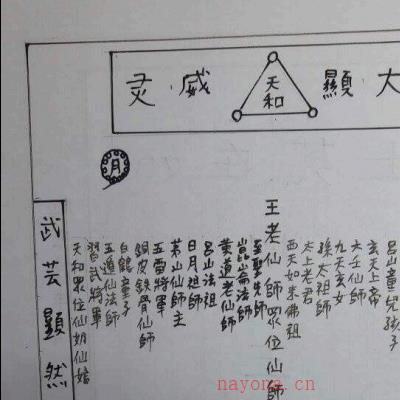 大顯威灵
天和
月
呂山童兒孩子
玄天上帝
六壬仙師
九天玄女
孫太祖師
太上老君
西天如来佛祖
王老仙師眾位仙師
至聖先師
崑崙法師
黄道老仙師
呂山法祖
日月祖師
茅山仙師主
五雷将軍
銅皮鉄骨仙師
白鶴童子
五遁仙法師
習武將軍
天和眾位仙奶仙婠
武芸顯然
nayona.cn